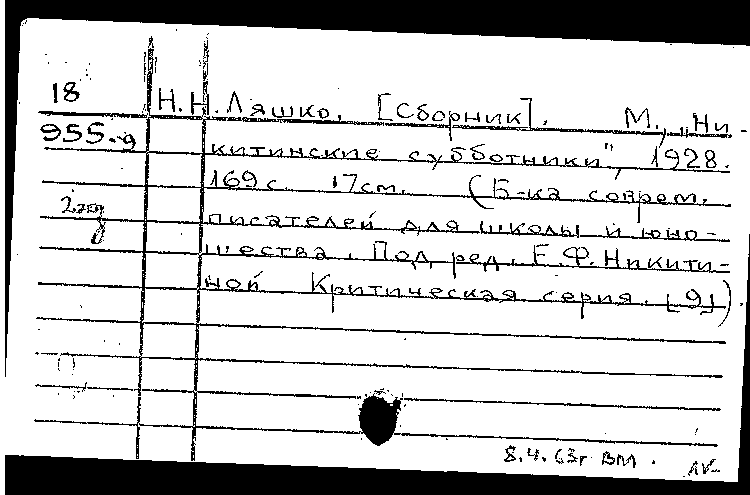 18
955.-9
2 экз
Н.Н. Ляшко. [Сборник]. М., „Ни-
китинские субботники", 1928.
169 с. 17 см. (Б-ка соврем.
писателей для школы и юно-
шества. Под ред. Е.Ф. Никити-
ной Критическая серия. [9])
8.4.63г ВМ.